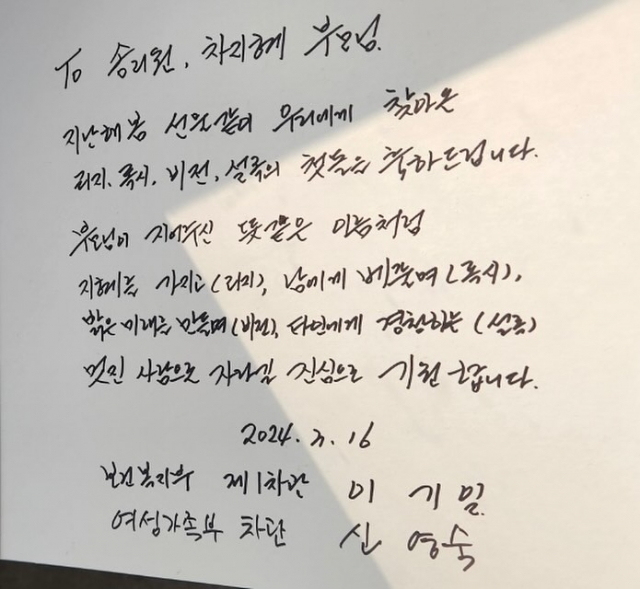 To 송리원, 차지혜 부모님.
지난해 봄 선물같이 우리에게 찾아온
리지, 록시, 비전, 설록의 첫돌을 축하드립니다.
부모님이 지어주신 뜻깊은 이름처럼
지혜를 가지고(리지), 남에게 베풀며(록시),
밝은 미래를 만들며(비전), 타인에게 경청하는 (설록)
멋진 사람으로 자라길 진심으로 기원 드립니다.
2024. 3. 16
보건복지부 제1차관 이 기 일
여성가족부 차관 신 영 숙